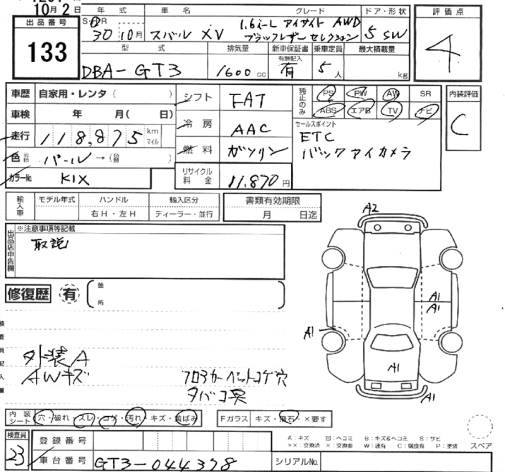 10月2日
出品番号
133
年式 車名 グレード ドア・形状
H 30 10月 スバル XV 1.6i-L アイサイト AWD
ブラックレザーセレクション 5 SW
評価点
4
型式 排気量 新車保証書 乗車定員 最大積載量
有 記録付
DBA-GT3 1600 cc 有 5人 kg
車歴 自家用・レンタ( )
シフト FAT
装備のみ PS PW AW SR
ABS エアB TV ナビ
内装評価
C
車検 年 月( 日)
冷房 AAC
セールスポイント
ETC
バックアイカメラ
走行 118,875 km マイル
燃料 ガソリン
色 パール→( )
カラーNo KIX
リサイクル料金 11,870円
輸入車 モデル年式 ハンドル 輸入区分
右H・左H ディーラー・並行
書類有効期限
月 日迄
※注意事項等記載
取説
出品店申告欄
修復歴 有
箇所
A2
A1
A1
A1
A1
外装A
AWキズ
フロアカーペットコゲ穴
タバコ臭
内装シート 穴・破れ スレ コゲ 汚れ キズ・
Fガラス キズ・飛石 ×要す
A:キズ
スペア
検査員
23
登録番号
車台番号 GT3-044378
シリアルNo.